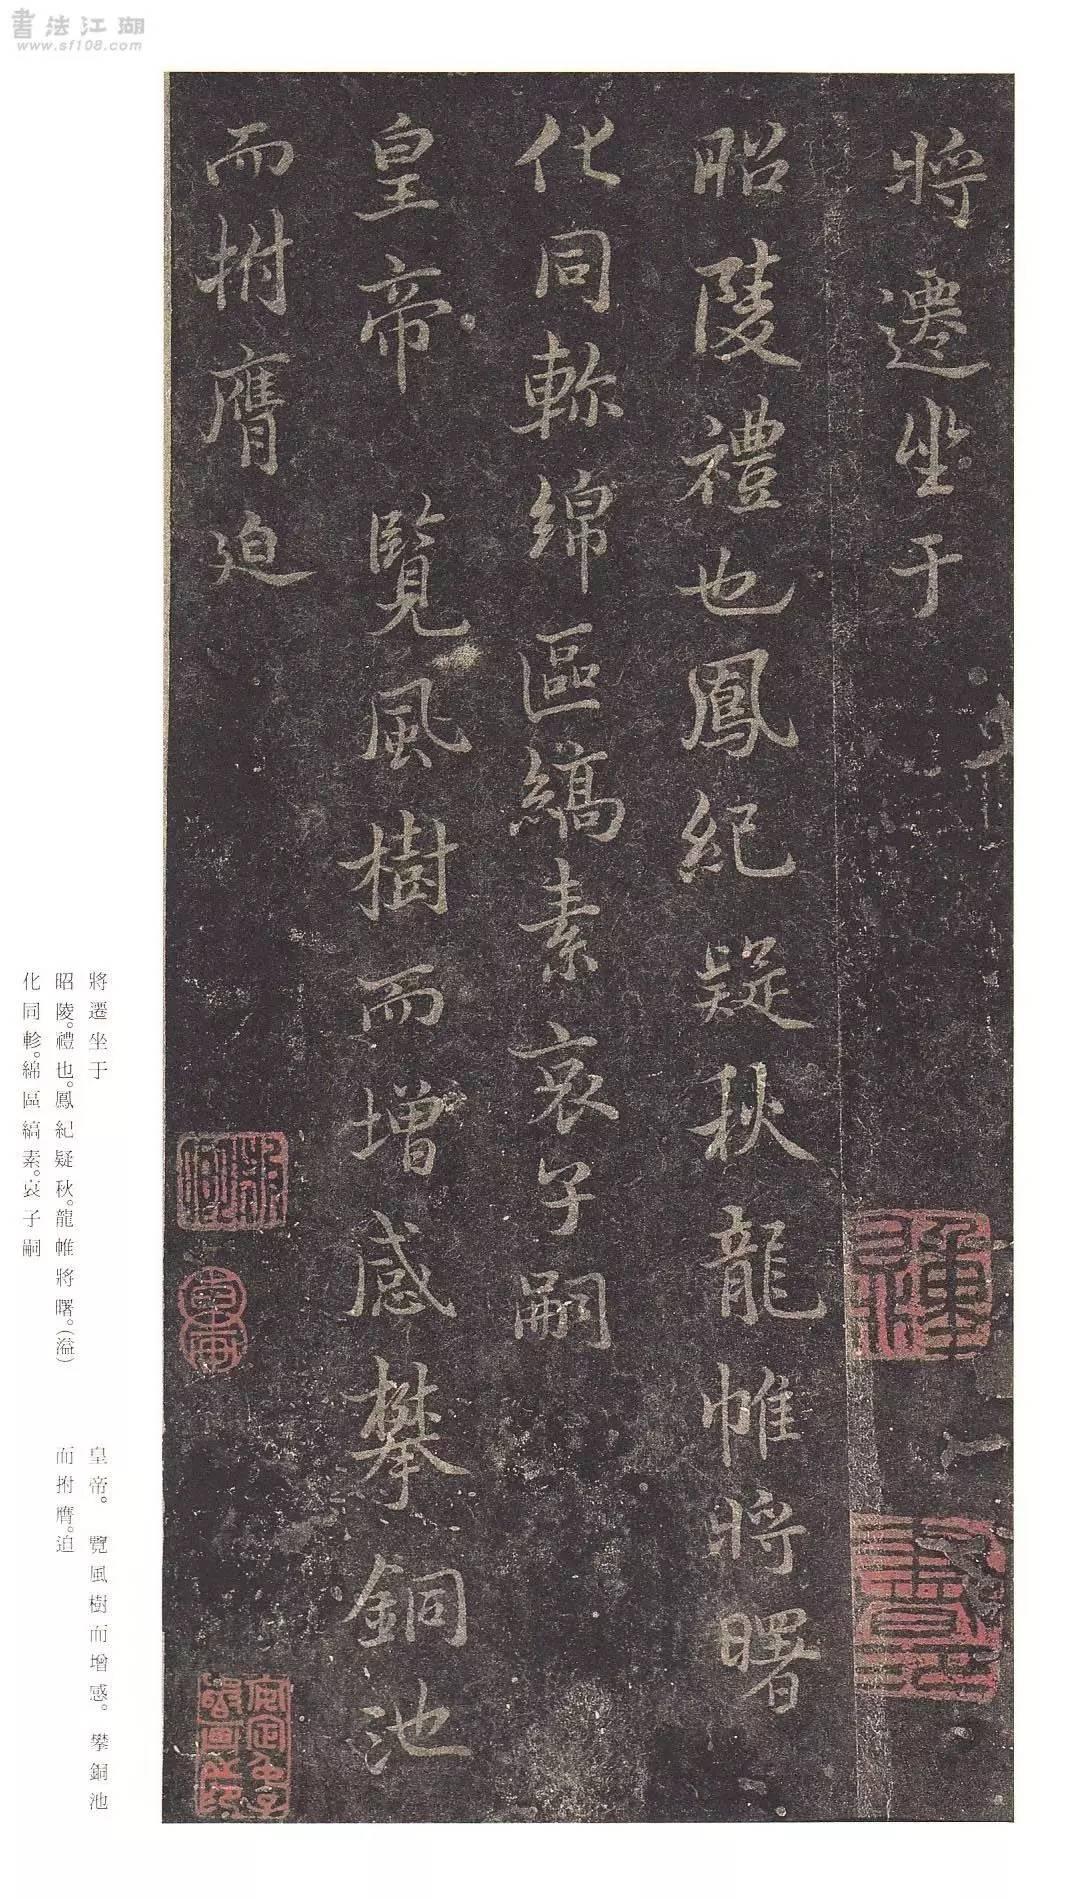 書法江湖
www.sf108.com
將遷坐于
昭陵禮也鳳紀疑秋龍帷將曙
化同軫綿區縞素哀子嗣
皇帝 覽風樹而增感攀銅池
而拊膺迫
將遷坐于
昭陵。禮也。鳳紀疑秋。龍帷將曙。(溢)
化同軫。綿區縞素。哀子嗣
皇帝。 覽風樹而增感。攀銅池
而拊膺。迫